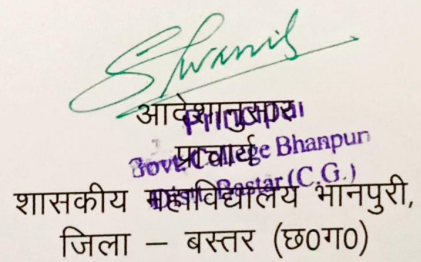 आदेशानुसार
Principal
प्राचार्य
Govt. College Bhanpuri
Distt. Bastar (C.G.)
शासकीय महाविद्यालय भानपुरी,
जिला – बस्तर (छ0ग0)